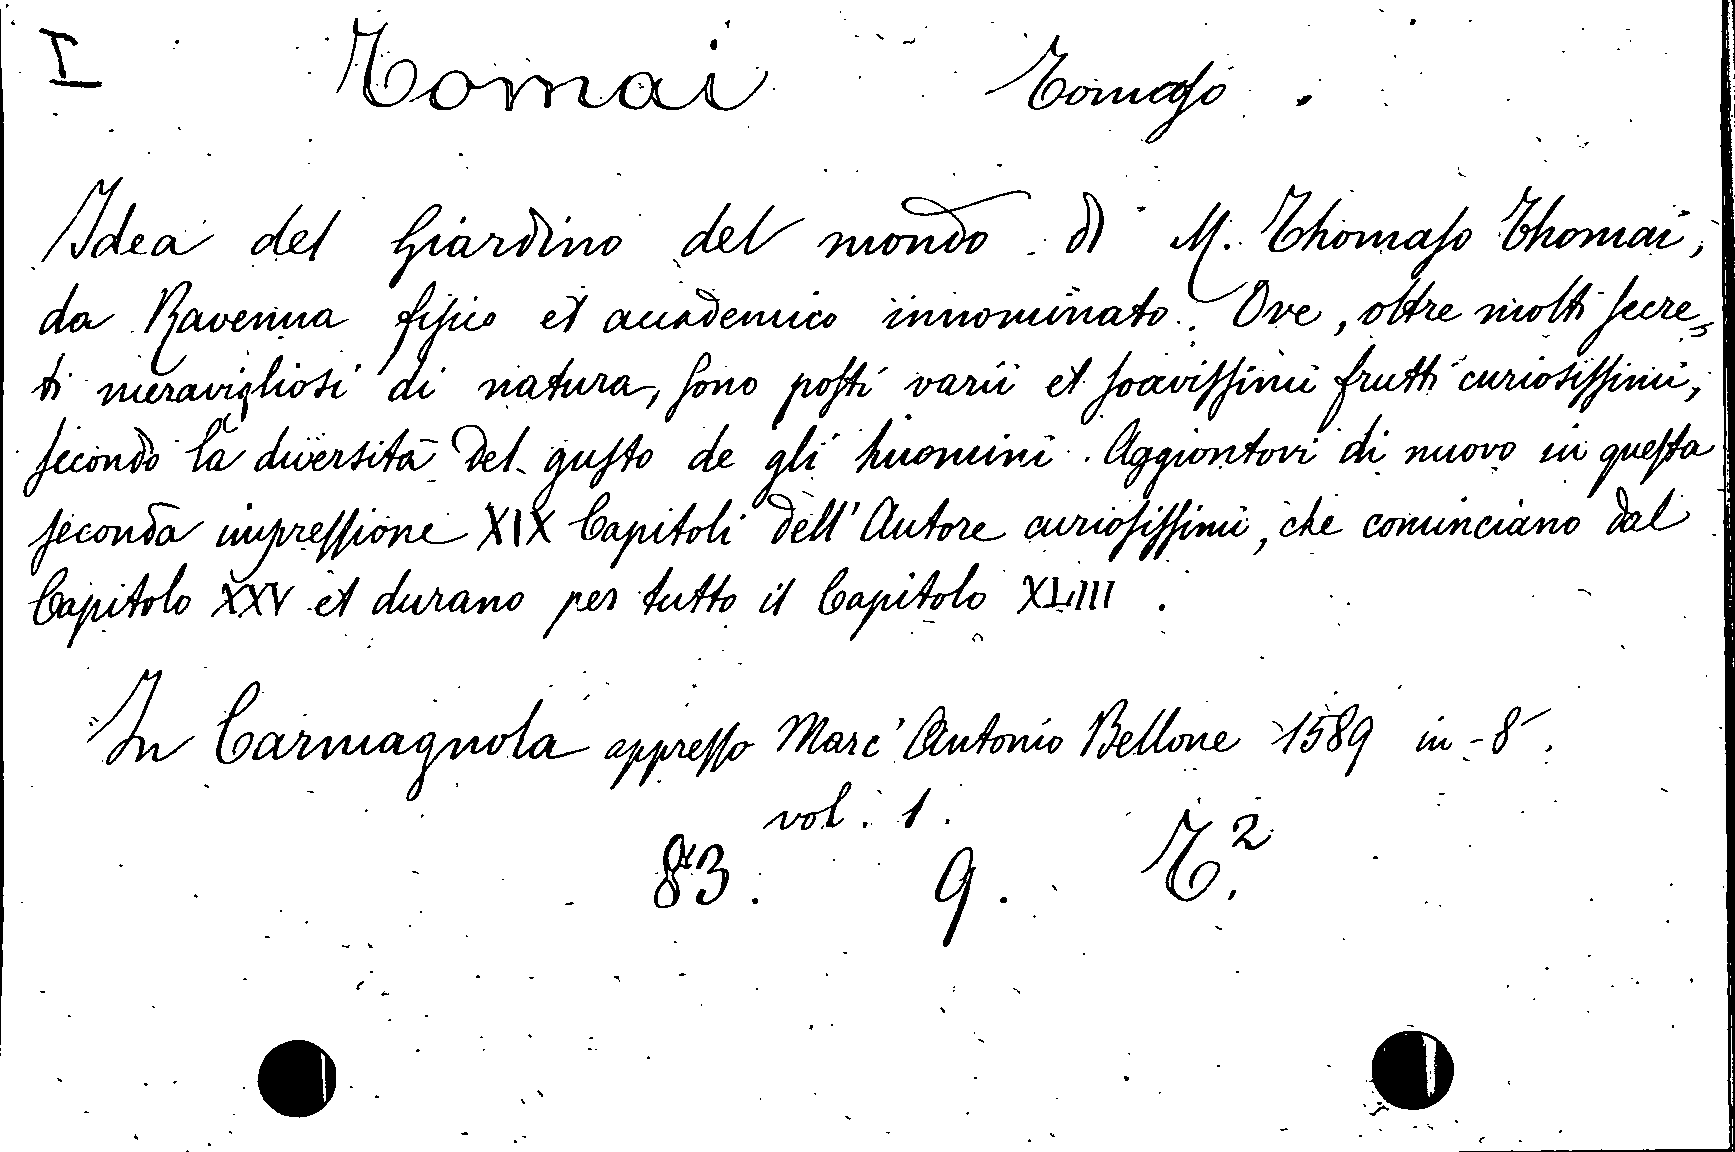 I Tomai Tomaso.
Idea del Giardino del mondo di M. Thomaso Thomai,
da Ravenna fisico et accademico innominato. Ove, oltre molti secre„
ti meravigliosi di natura, sono posti varii et soavissimi frutti curiosissimi,
secondo la diversità del gusto de gli huomini. Aggiontovi di nuovo in questa
seconda impressione XIX Capitoli dell'Autore curiosissimi, che cominciano dal
Capitolo XXV et durano per tutto il Capitolo XLIII.
In Carmagnola appresso Marc'Antonio Bellone 1589 in-8.
vol. 1.
83. 9. T.²